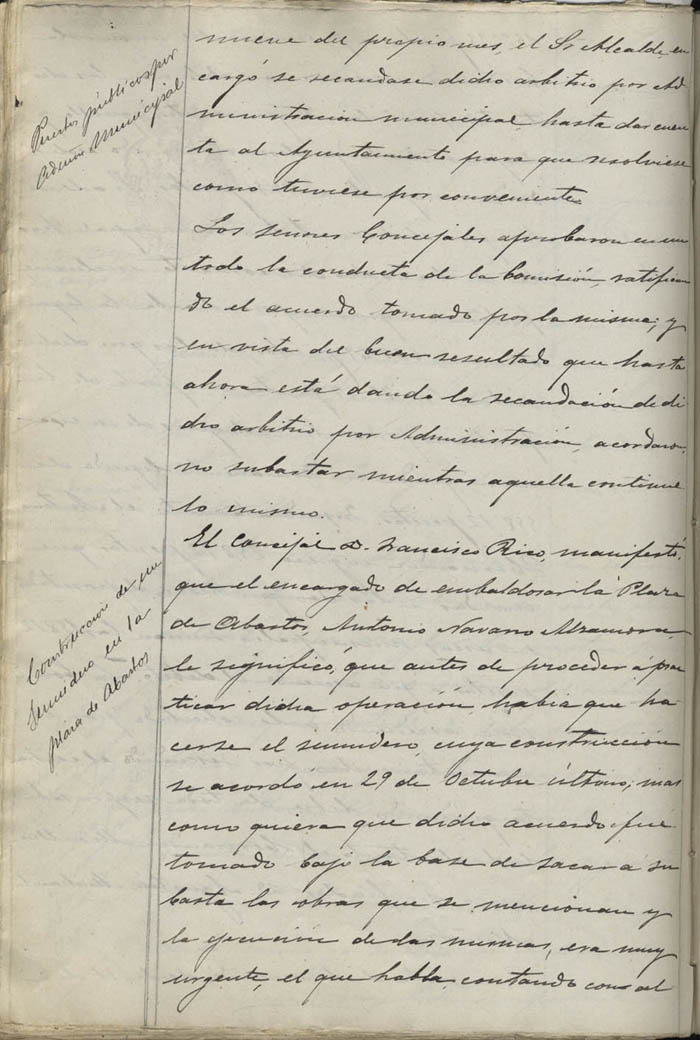 nueve del propio mes, el Sr Alcalde, en
cargó se recaudase dicho arbitrio por Ad
ministracion municipal, hasta dar cuen
ta al Ayuntamiento para que resolviese
como tuviese por conveniente.
Puestos públicos por
Admon Municipal
Los señores Concejales aprobaron en un
todo la conducta de la Comisión ratifican
do el acuerdo tomado por la misma; y
en vista del buen resultado que hasta
ahora está dando la recaudación de di
cho arbitrio por Administración, acordaron
no subastar mientras aquella continue
lo mismo.
Construccion de un
Sumidero en la
plaza de Abastos
El Concejal D. Francisco Rico, manifestó,
que el encargado de embaldosar la Plaza
de Abastos, Antonio Navarro
le significó, que antes de proceder á prac
ticar dicha operación, habia que ha
cerse el sumidero, cuya construcción
se acordó en 29 de Octubre último; mas
como quiera que dicho acuerdo fue
tomado bajo la base de sacar a su
basta las obras que se mencionan y
la ejecución de las mismas, era muy
urgente, el que habla, contando con al